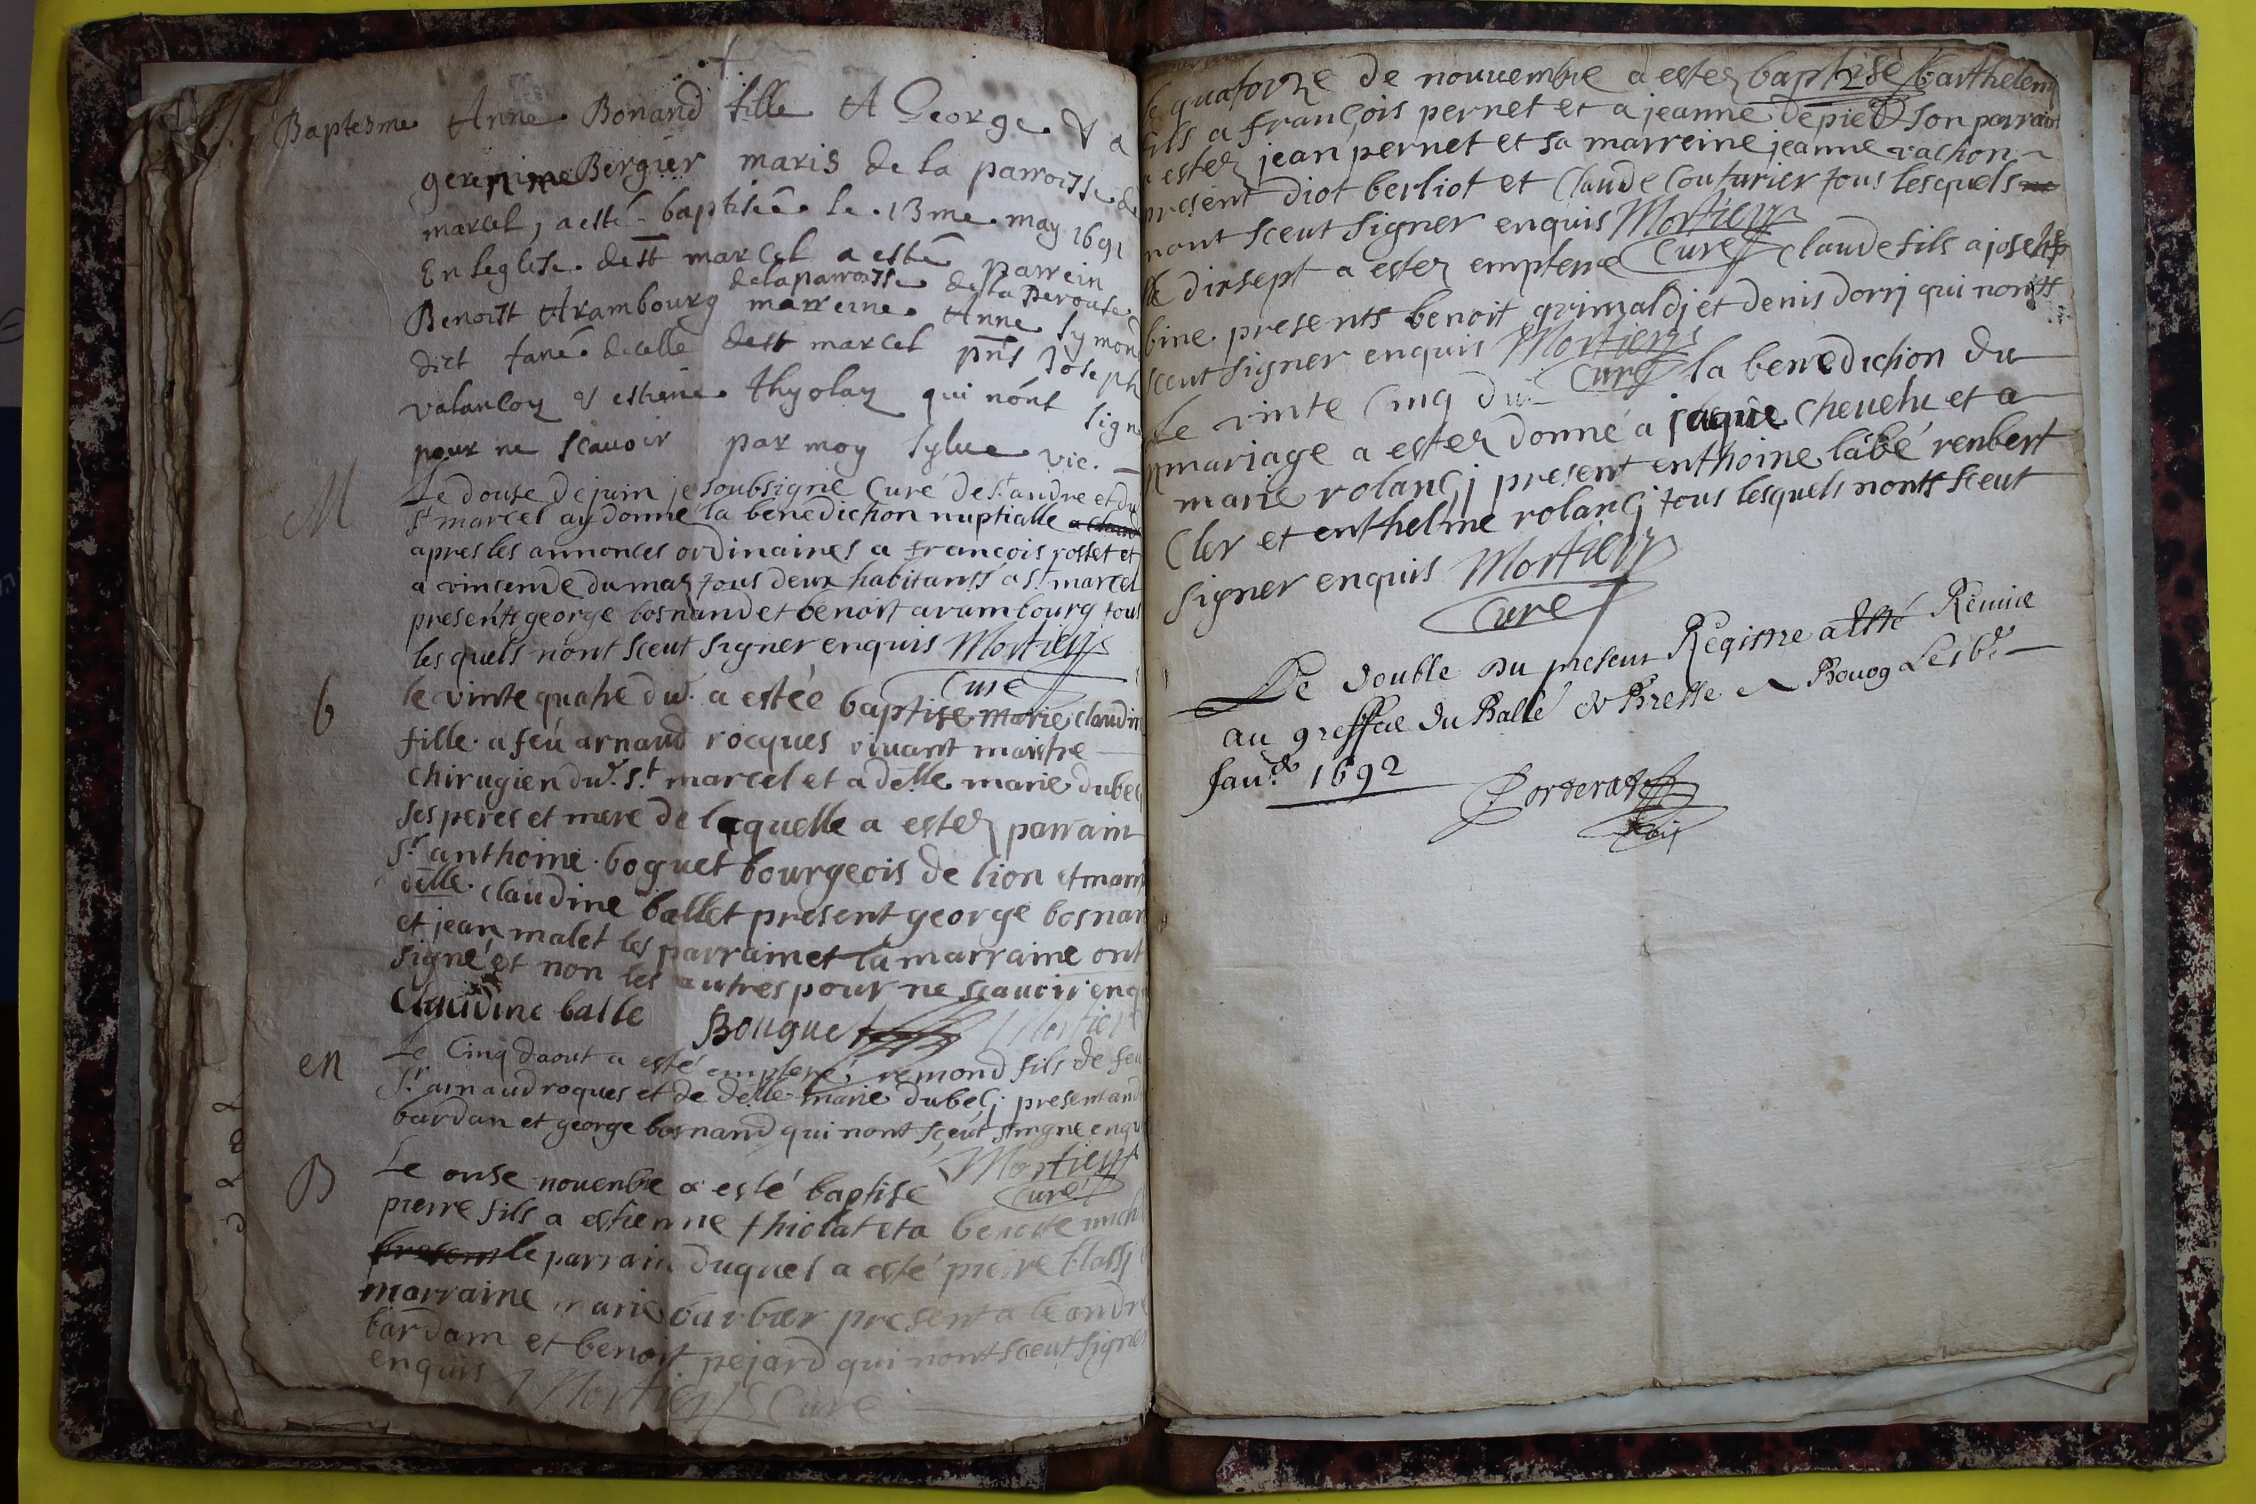 Baptesme Anne Bonand fille A George & a
Bergier maris de la parroisse de
marcel, a esté baptisée le 13me may 1691
En leglise de st marcel a esté parrein
de la parroisse de la perouse
Benoist Arambourg marreine Anne Symond
dict fané de celle de st marcel pñs Joseph
valancoy & estiene thyolay qui nónt signé
pour ne scavoir par moy Sylve vic.
M
Le douse de juin je soubsigné Curé de St andre et du
St marcel ay donné la benediction nuptialle
apres les annonces ordinaires a françois rosset et
a vinsende dumas tous deux habitants a St marcel
presents george bosnand et benoit arambourg tous
les quels nónt sceut signer enquis Mortier
Curé
b
le vinte quatre du. a estéé baptise marie claudin
fille a feu arnaud rocques vivant maistre
Chirugien du. St marcel et a delle marie dubec
ses peres et mere de laquelle a estez parrain
Sr anthoine boguet bourgeois de lion et marr
delle. claudine ballet present george bosnan
et jean malet les parrain et la marraine ont
signé et non les autres pour ne scauoir enq
Claudine balle Bouguet Mortier
en
Le Cinq daout a esté empteré remond fils de feu
Sr arnaud roques et de delle marie dubecj present and
bardan et george bosnand qui nont sceut singne enqu
Mortier
Curé
B
Le onse novenbre a esté baptise
pierre fils a estienne thiolat et a benoite mich
le parrain duquel a esté pierre blassj
marraine marie barbar present a le andre
bardam et benoit pejard qui nont sceut signer
enquis Mortier Curé
le quatorze de nouvembre a estez baptisé barthelemj
fils a françois pernet et a jeanne depied son parrain
a estez jean pernet et sa marreine jeanne vachon
present diot berliot et Claude Couturier tous lesquels
nont sceut signer enquis Mortier
Curé
le dixsept a estez empterré Claude fils a joseph
bine presents benoit grimaldj et denis dorrj qui nonts
sceut signer enquis Mortier
Curé
Le vinte Cinq du la benediction du
mariage a estez donné a jaque Cheuelu et a
marie rolancj present enthoine labé renbert
Cler et enthelme rolancj tous lesquels nonts sceut
signer enquis Mortier
Curé
Le double du present Registre a esté Remise
au greffe du Balle de Bresse a Bourg Le
1692